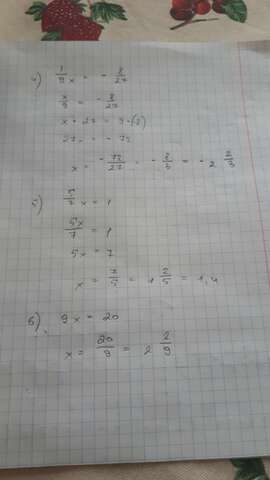 4) 1/9 x = - 8/27
x/9 = - 8/27
x · 27 = 9 · (-8)
27x = - 72
x = - 72/27 = - 8/3 = - 2 2/3
5) 5/7 x = 1
5x/7 = 1
5x = 7
x = 7/5 = 1 2/5 = 1,4
6) 9x = 20
x = 20/9 = 2 2/9